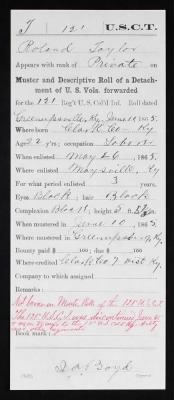 T | 121 | U.S.C.T.
Roland Taylor
Appears with rank of Private on
Muster and Descriptive Roll of a Detach-
ment of U. S. Vols. forwarded
for the 121 Reg't U.S. Col'd Inf. Roll dated
Greenupsburg, Ky, June 10, 1865.
Where born Clark Co Ky
Age 22 y'rs; occupation Laborer
When enlisted May 26, 1865.
Where enlisted Maysville, Ky
For what period enlisted 3 years.
Eyes Black; hair Black
Complexion Black; height 5 ft. in.
When mustered in June 10, 1865.
Where mustered in Ky
Bounty paid $ 100; due $ 100
Where credited Clark Co 7 Dist Ky
Company to which assigned
Remarks:
Not borne on Muster Rolls of the 125 U.S.C.T.
The 125 U.S.C.
Book mark:
Boyd